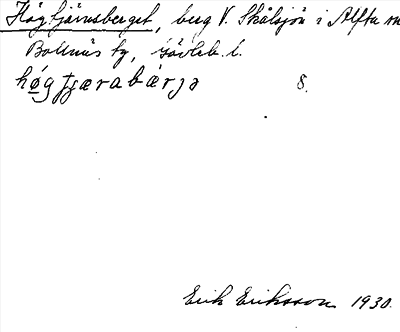 Högtjärnsberget, berg V. Skålsjön i Alfta sn
Bollnäs tg, Gävleb. l.
høgtjærabärjə 8.
Erik Eriksson 1930.